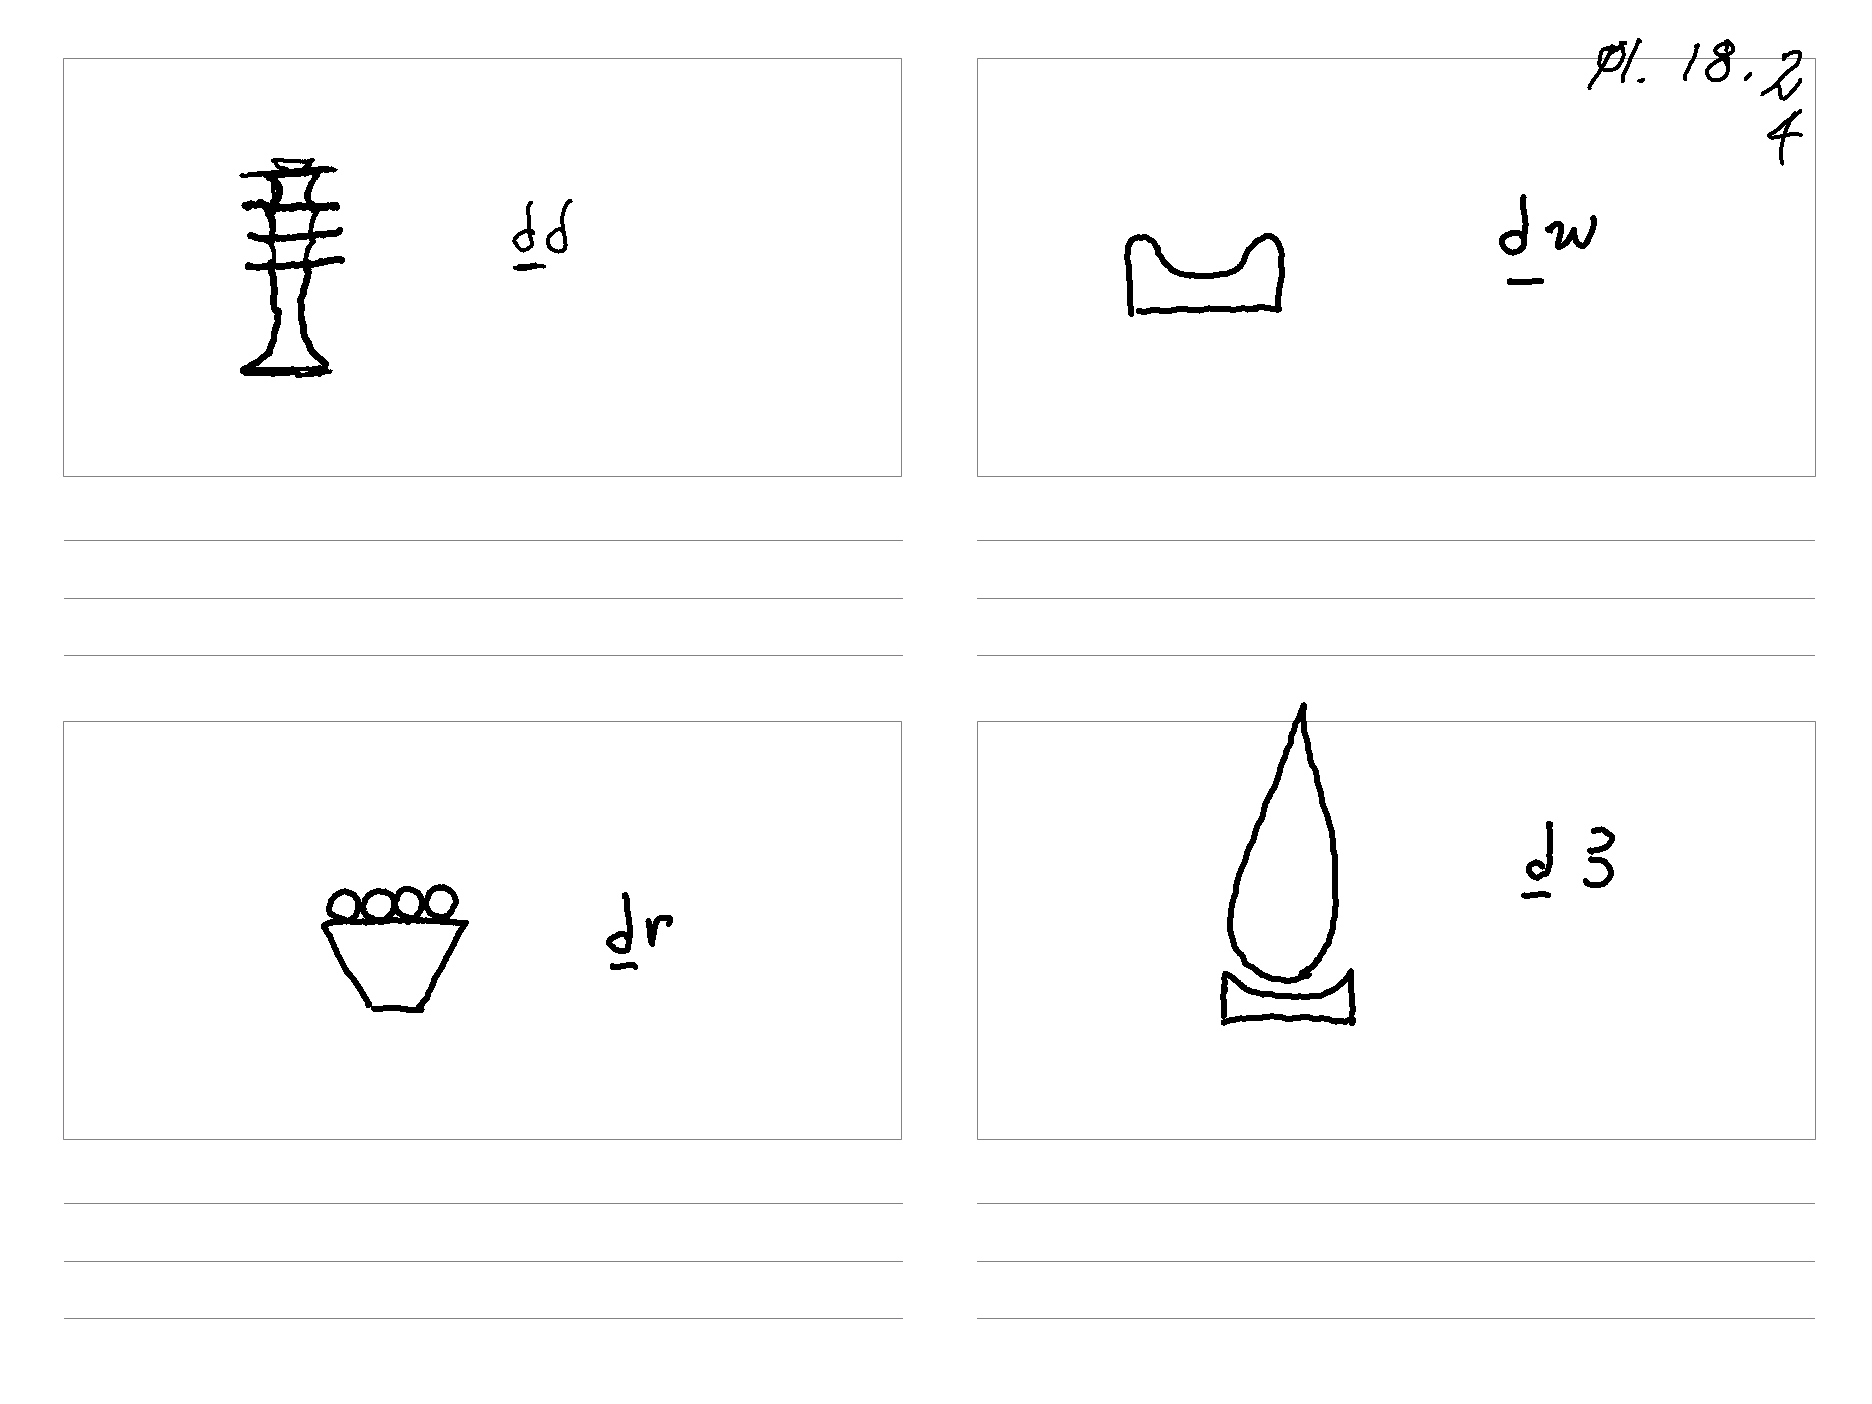 pl. 18.2
4
ḏd
ḏw
ḏr
ḏ3